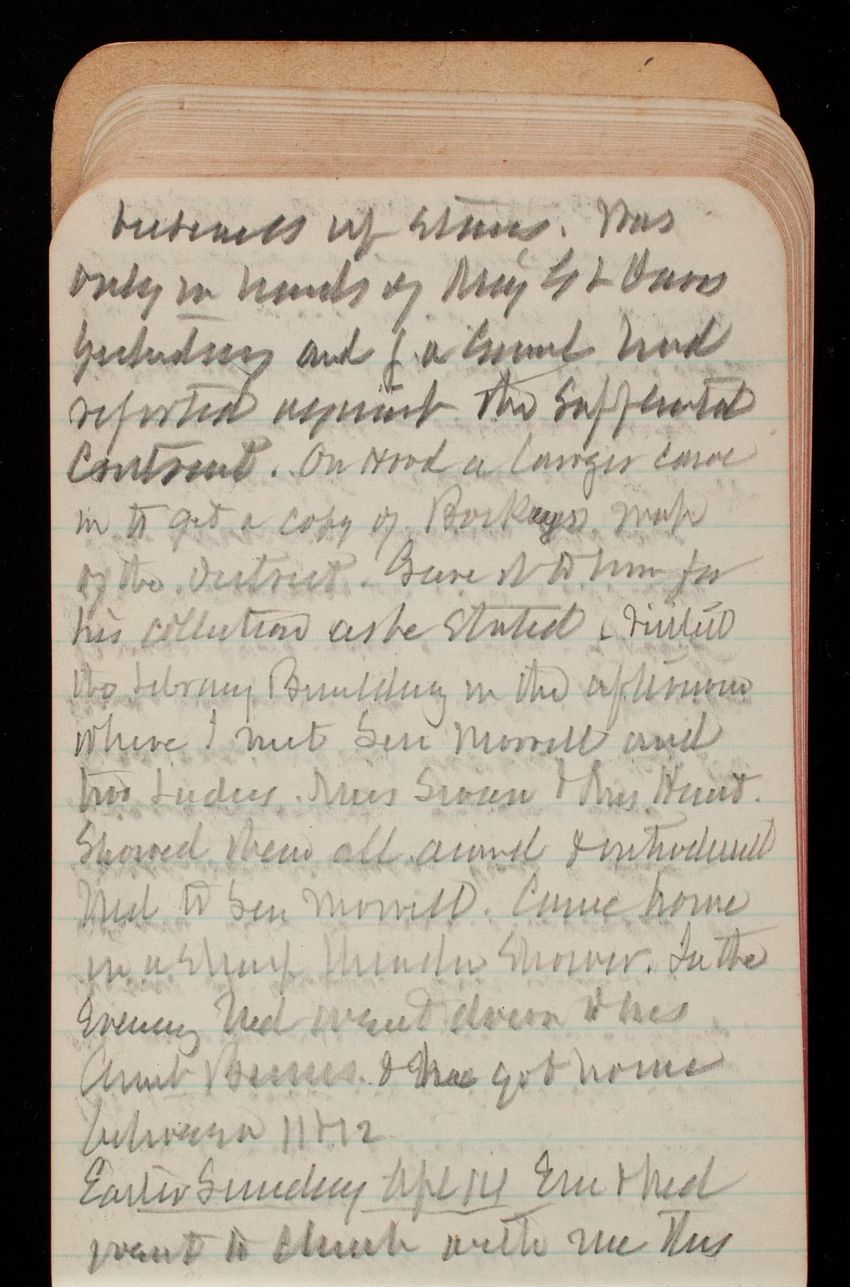 business of Stairs. Was
only in hands of Maj G L Davis
yesterday and a Board had
reported against the Supplemental
Contract. On Hood a lawyer came
in to get a copy of map
of the District. Gave it to him for
his collection as he stated. Visited
the Library Building in the afternoon
where I met Sen Morrill and
two Ladies. Miss Swan & Mrs Hunt.
Showed them all around & introduced
Ned to Sen Morrill. Came home
in a sharp thunder shower. In the
Evening Ned went down to his
Aunt & has got home
between 11 & 12
Easter Sunday Apl 14 Em & Ned
went to Church with me this